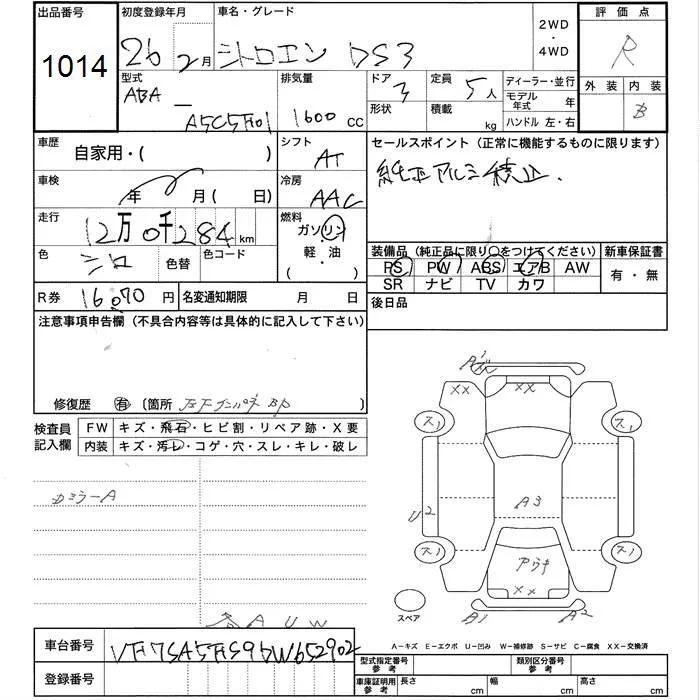 出品番号
1014
初度登録年月
26 2月
車名・グレード
シトロエン DS3
2WD
・
4WD
評価点
R
外装 内装
B
型式
ABA
A5C5F01
排気量
1600 CC
ドア
3
形状
定員
5人
積載
kg
ディーラー・並行
モデル年式 年
ハンドル 左・右
車歴
自家用・( )
シフト
AT
セールスポイント (正常に機能するものに限ります)
純正アルミ
車検
年 月 ( 日)
冷房
AAC
走行
12万0千284 km
燃料
ガソリン
軽・油
( ・ )
色
シロ
色替
色コード
装備品 (純正品に限り○をつけてください)
PS PW ABS エアB AW
SR ナビ TV カワ
新車保証書
有・無
R券
16,070円
名変通知期限 月 日
後日品
注意事項申告欄 (不具合内容等は具体的に記入して下さい)
修復歴 有 〔箇所
検査員記入欄
FW キズ・飛石・ヒビ割・リペア跡・X要
内装 キズ・汚レ・コゲ・穴・スレ・キレ・破レ
カミラーA
各AUW
XX
XX
XX
ス1
ス1
ス1
ス1
U2
A3
アウキ
XX
B1
A2
スペア
A−キズ E−エクボ U−凹み W−補修跡 S−サビ C−腐食 XX−交換済
車台番号
VF7SA5FS95W652902
登録番号
型式指定番号
参考
類別区分番号
参考
車庫証明用
参考
長さ cm
幅 cm
高さ cm